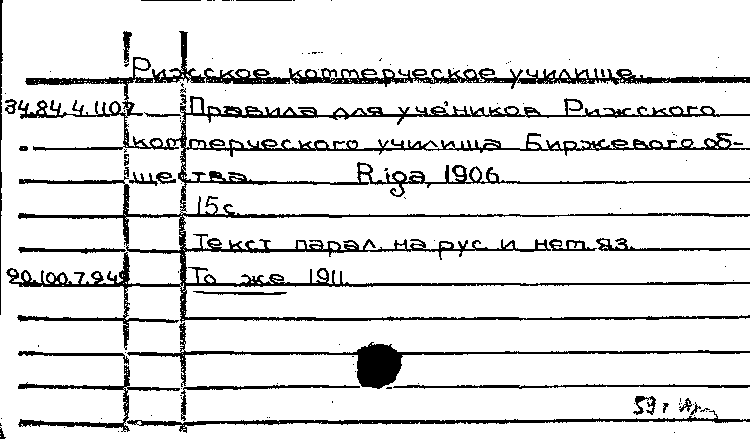 Рижское коммерческое училище.
34.84.4.1107 Правила для учеников Рижского
коммерческого училища Биржевого об-
щества Riga, 1906
15 с.
Текст парал. на рус. и нем. яз.
90.100.7.949 То же 1911.
59 г